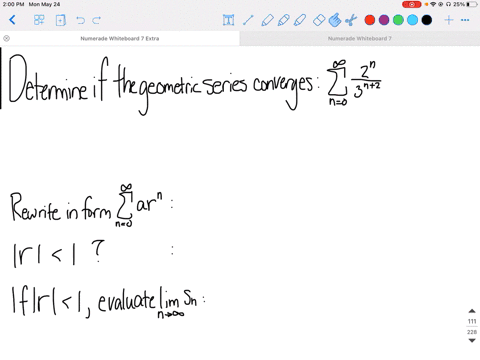 2:00 PM Mon May 24
25%
Numerade Whiteboard 7 Extra
Numerade Whiteboard 7
Determine if the geometric series converges: ∑_{n=0}^{∞} 2^n / 3^{n+2}
Rewrite in form ∑_{n=0}^{∞} ar^n :
|r| < 1 ? :
If |r| < 1, evaluate lim_{n→∞} S_n :
111
228